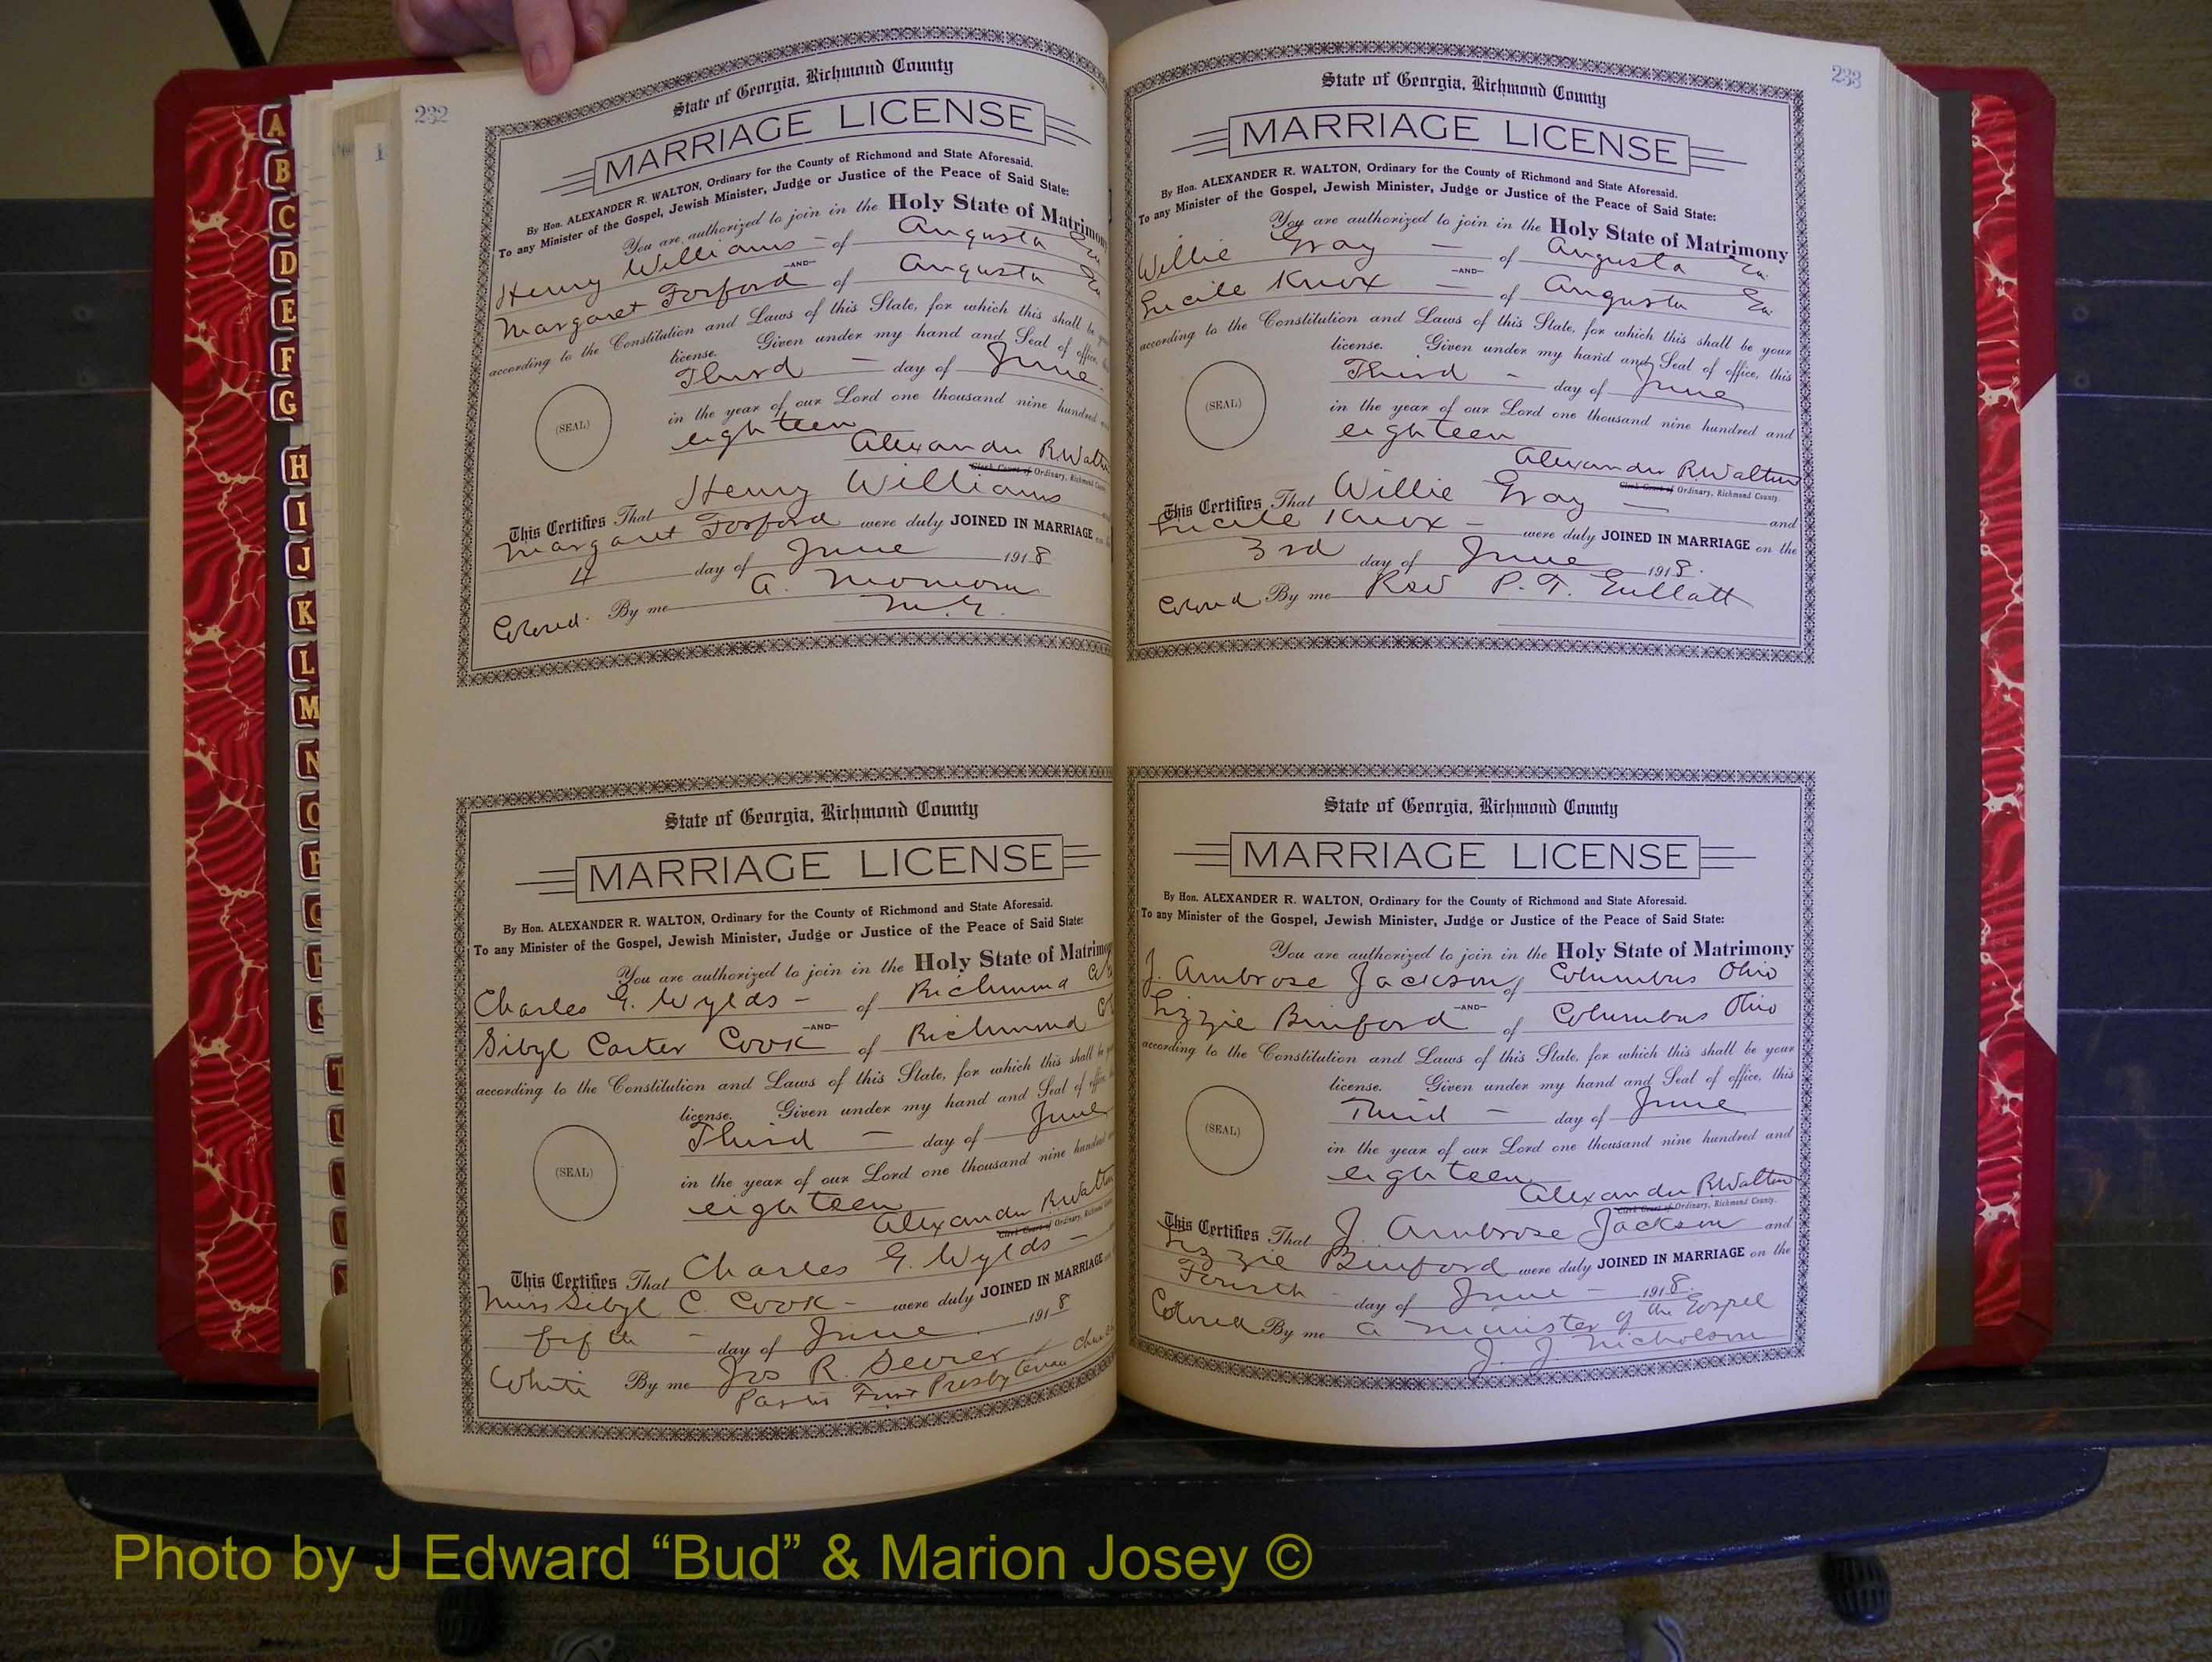 232
State of Georgia, Richmond County
MARRIAGE LICENSE
By Hon. ALEXANDER R. WALTON, Ordinary for the County of Richmond and State Aforesaid.
To any Minister of the Gospel, Jewish Minister, Judge or Justice of the Peace of Said State:
You are authorized to join in the Holy State of Matrimony
Henry Williams - of Augusta Ga
-AND-
Margaret Forford of Augusta Ga
according to the Constitution and Laws of this State, for which this shall be your
license. Given under my hand and Seal of office, this
Third - day of June
in the year of our Lord one thousand nine hundred and
(SEAL)
eighteen
Alexander R Walton
Clerk Court of Ordinary, Richmond County
This Certifies That Henry Williams
Margaret Forford were duly JOINED IN MARRIAGE on
4 day of June 1918
Colored. By me A.
M.G.
State of Georgia, Richmond County
MARRIAGE LICENSE
By Hon. ALEXANDER R. WALTON, Ordinary for the County of Richmond and State Aforesaid.
To any Minister of the Gospel, Jewish Minister, Judge or Justice of the Peace of Said State:
You are authorized to join in the Holy State of Matrimony
Charles G. Wylds - of Richmond Co
-AND-
Sibyl Carter Cook of Richmond Co
according to the Constitution and Laws of this State, for which this shall be your
license. Given under my hand and Seal of office, this
Third - day of June
(SEAL)
in the year of our Lord one thousand nine hundred
eighteen
Alexander R Walton
Clerk Court of Ordinary, Richmond
This Certifies That Charles G. Wylds -
Miss Sibyl C. Cook - were duly JOINED IN MARRIAGE on
fifth - day of June 1918
White By me Jos R. Sevier
Pastor First Presbyterian Church
233
State of Georgia, Richmond County
MARRIAGE LICENSE
By Hon. ALEXANDER R. WALTON, Ordinary for the County of Richmond and State Aforesaid.
To any Minister of the Gospel, Jewish Minister, Judge or Justice of the Peace of Said State:
You are authorized to join in the Holy State of Matrimony
Willie Gray - of Augusta Ga.
-AND-
Lucile Knox - of Augusta Ga.
according to the Constitution and Laws of this State, for which this shall be your
license. Given under my hand and Seal of office, this
Third - day of June
(SEAL)
in the year of our Lord one thousand nine hundred and
eighteen
Alexander R. Walton
Clerk Court of Ordinary, Richmond County.
This Certifies That Willie Gray - and
Lucile Knox - were duly JOINED IN MARRIAGE on the
3rd day of June 1918.
Colored By me Rev P. T.
State of Georgia, Richmond County
MARRIAGE LICENSE
By Hon. ALEXANDER R. WALTON, Ordinary for the County of Richmond and State Aforesaid.
To any Minister of the Gospel, Jewish Minister, Judge or Justice of the Peace of Said State:
You are authorized to join in the Holy State of Matrimony
J. Ambrose Jackson of Columbus Ohio
-AND-
Lizzie Binford of Columbus Ohio
according to the Constitution and Laws of this State, for which this shall be your
license. Given under my hand and Seal of office, this
Third - day of June
(SEAL)
in the year of our Lord one thousand nine hundred and
eighteen
Alexander R. Walton
Clerk Court of Ordinary, Richmond County.
This Certifies That J. Ambrose Jackson and
Lizzie Binford were duly JOINED IN MARRIAGE on the
Fourth - day of June - 1918.
Colored By me a minister of the Gospel
J. J. Nicholson
A
B
C
D
E
F
G
H
I
J
K
L
M
N
O
P
Photo by J Edward “Bud” & Marion Josey ©